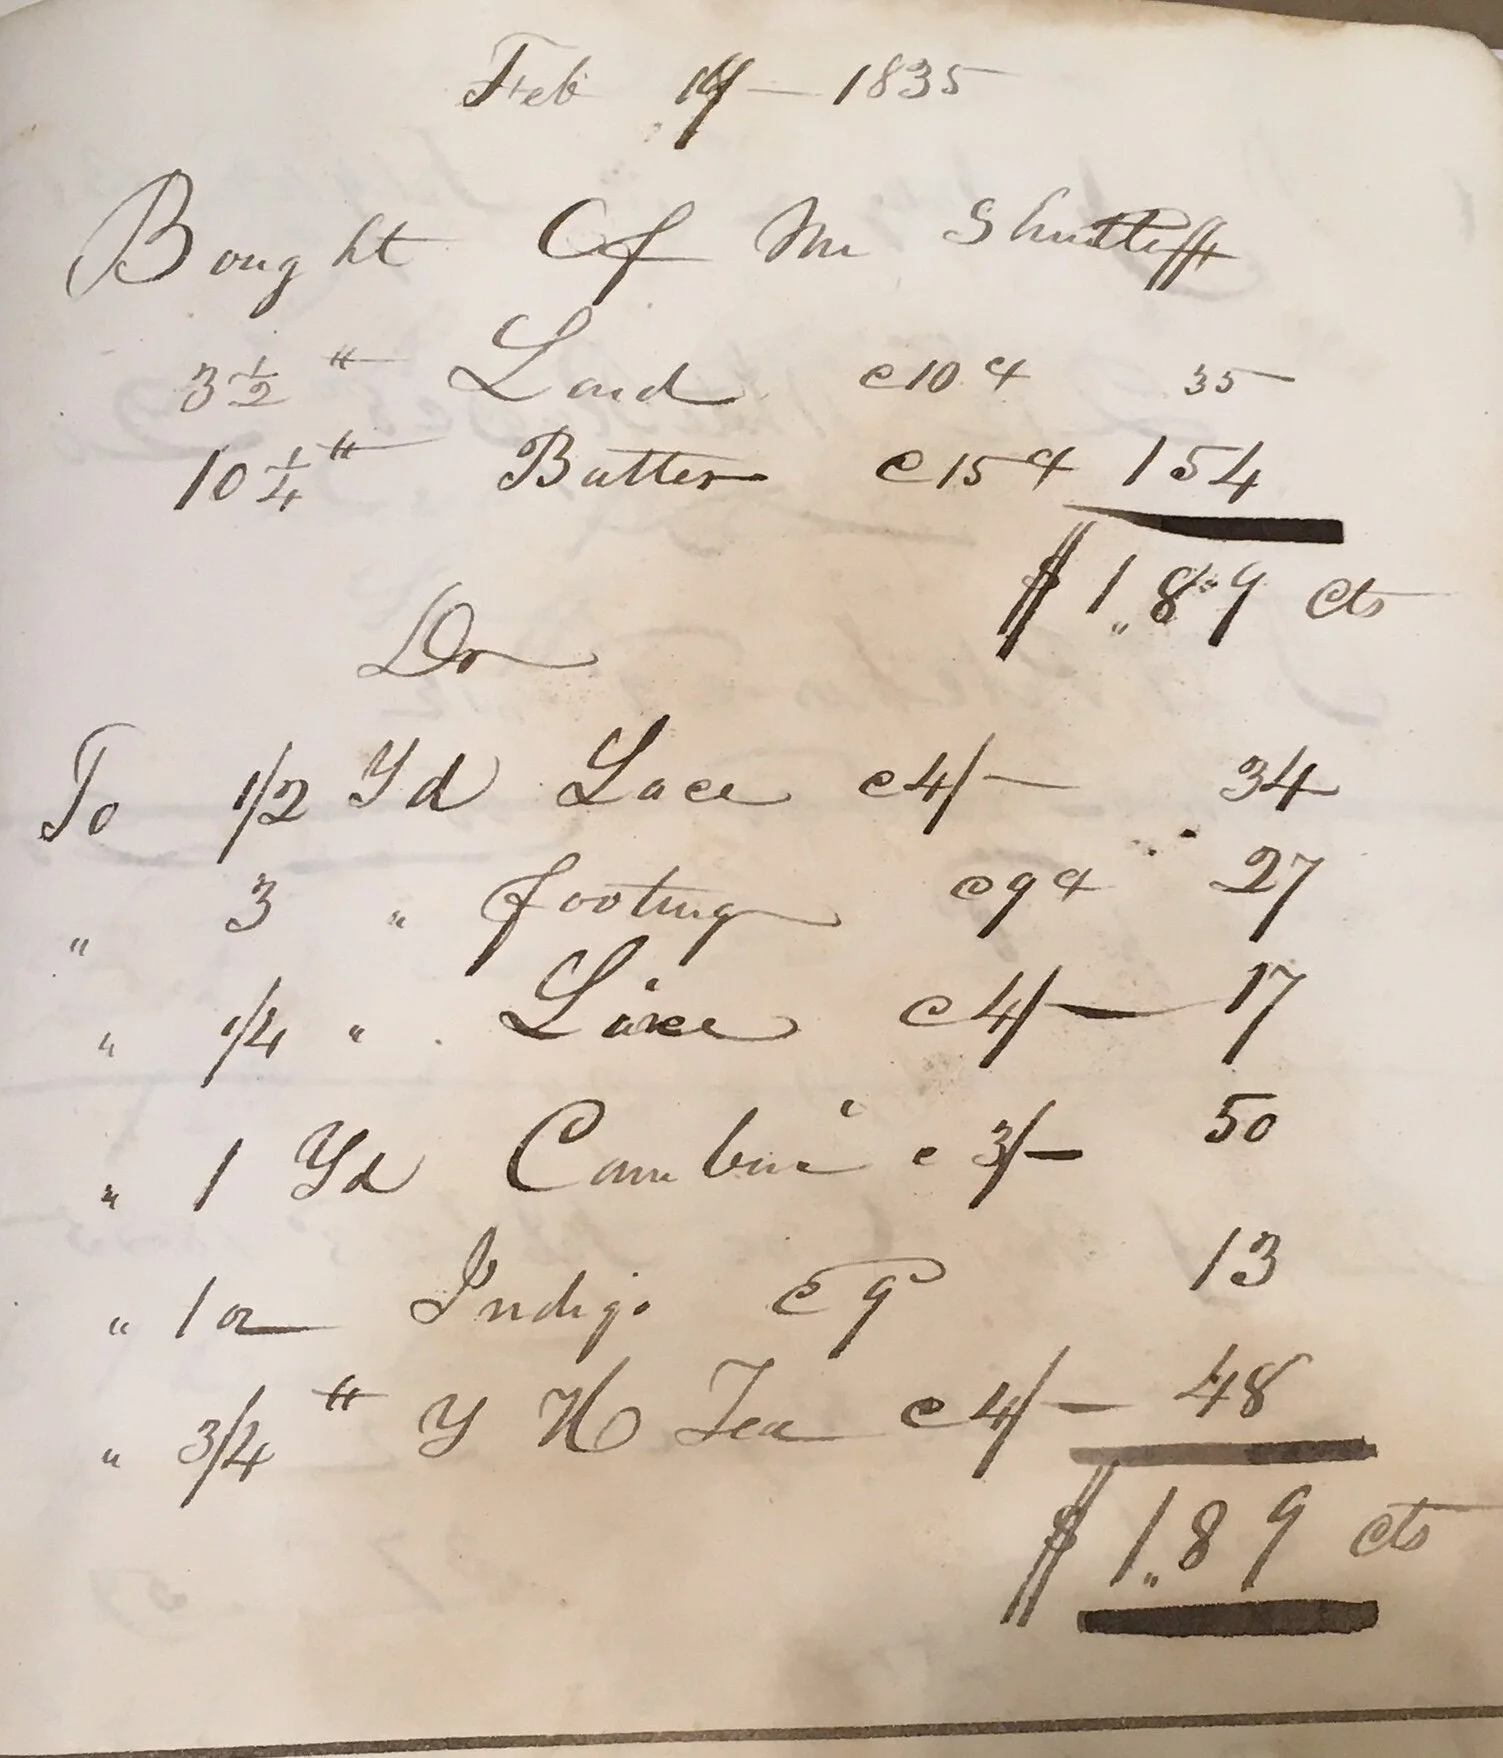 Feb 14 — 1835
Bought Of Mr Shurtleff
3 1/2 tt Lard @ 10 ¢ 35
10 1/4 tt Butter @ 15 ¢ 154
$ 1.89 cts
Dr
To 1/2 Yd Lace @ 4/- 34
" 3 " footing @ 9 ¢ 27
" 1/4 " Lace @ 4/- 17
" 1 Yd @ 3/- 50
" 1 oz Indigo @ 9 13
" 3/4 tt Y H Tea @ 4/- 48
$ 1.89 cts